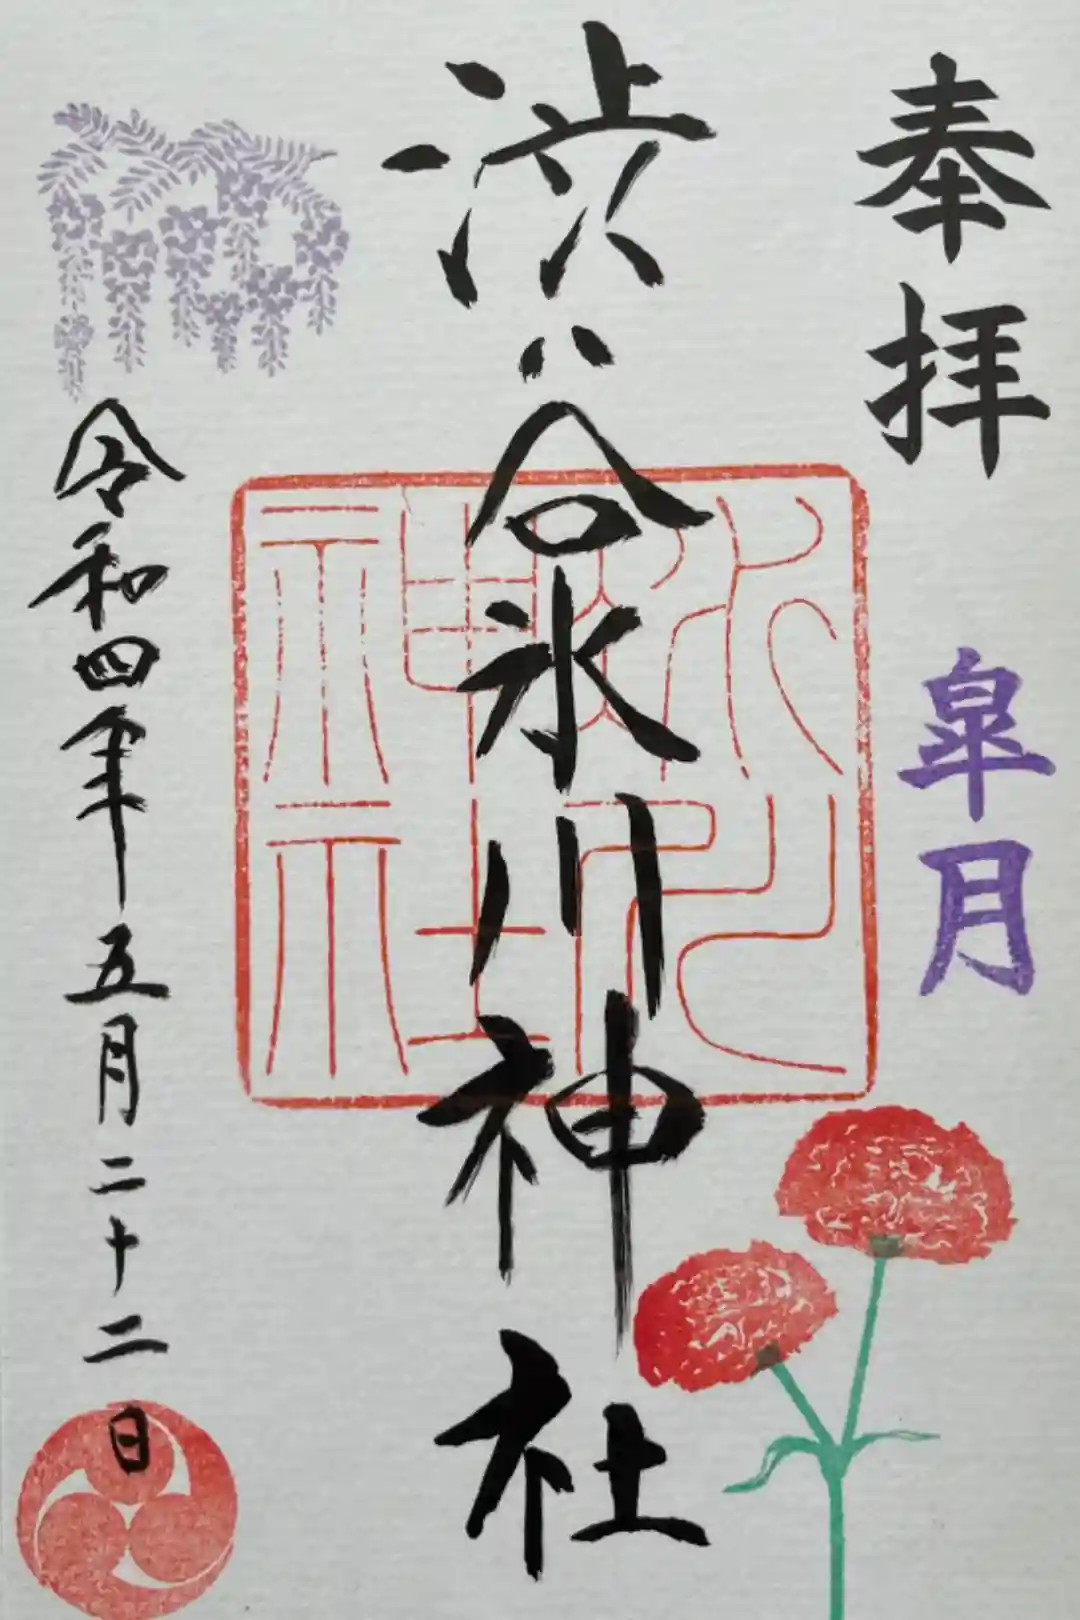 奉拝
皐月
渋谷氷川神社
氷川神社
令和四年五月二十二日